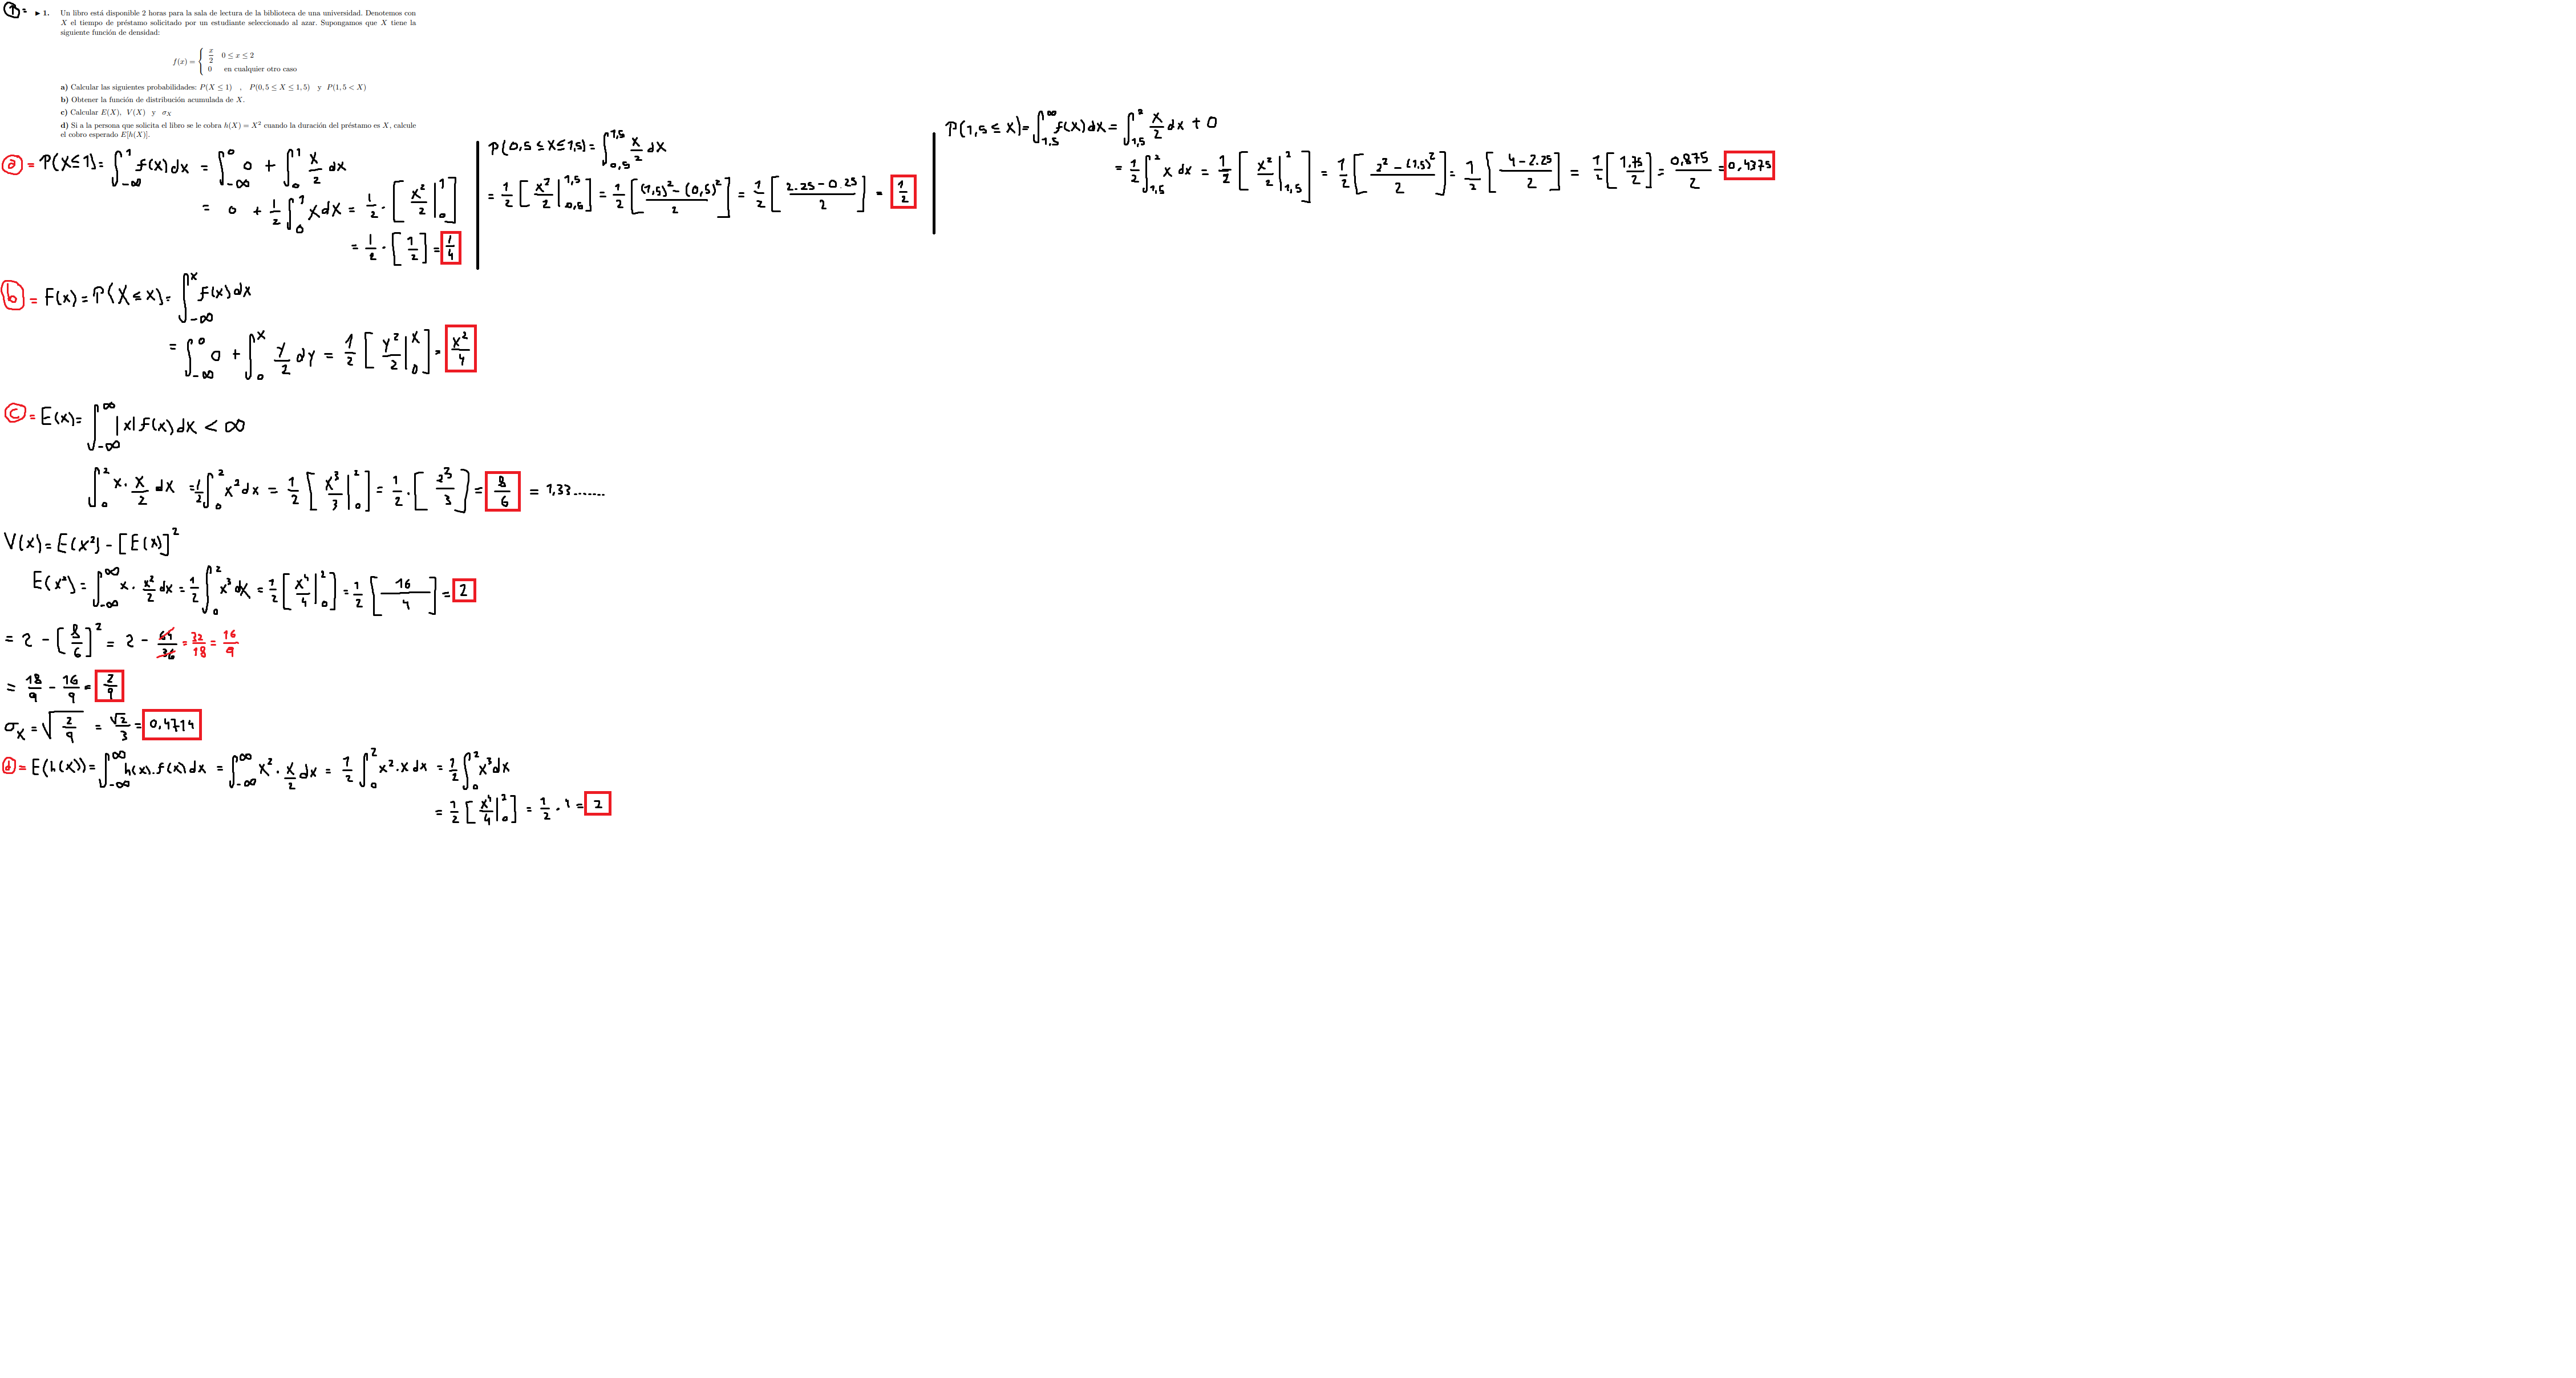 ① = ▸ 1. Un libro está disponible 2 horas para la sala de lectura de la biblioteca de una universidad. Denotemos con
X el tiempo de préstamo solicitado por un estudiante seleccionado al azar. Supongamos que X tiene la
siguiente función de densidad:
f(x) = { x/2 0 ≤ x ≤ 2
0 en cualquier otro caso
a) Calcular las siguientes probabilidades: P(X ≤ 1) , P(0,5 ≤ X ≤ 1,5) y P(1,5 < X)
b) Obtener la función de distribución acumulada de X.
c) Calcular E(X), V(X) y σ_X
d) Si a la persona que solicita el libro se le cobra h(X) = X² cuando la duración del préstamo es X, calcule
el cobro esperado E[h(X)].
ⓐ = P(X≤1) = ∫_{-∞}^{1} f(x) dx = ∫_{-∞}^{0} 0 + ∫_{0}^{1} x/2 dx
= 0 + 1/2 ∫_{0}^{1} x dx = 1/2 · [ x²/2 |_{0}^{1} ]
= 1/2 · [ 1/2 ] = 1/4
P(0,5 ≤ X ≤ 1,5) = ∫_{0,5}^{1,5} x/2 dx
= 1/2 [ x²/2 |_{0,5}^{1,5} ] = 1/2 [ ((1,5)² - (0,5)²)/2 ] = 1/2 [ (2.25 - 0.25)/2 ] = 1/2
P(1,5 ≤ X) = ∫_{1,5}^{∞} f(x) dx = ∫_{1,5}^{2} x/2 dx + 0
= 1/2 ∫_{1,5}^{2} x dx = 1/2 [ x²/2 |_{1,5}^{2} ] = 1/2 [ (2² - (1,5)²)/2 ] = 1/2 [ (4 - 2.25)/2 ] = 1/2 [ 1.75/2 ] = 0,875/2 = 0,4375
ⓑ = F(x) = P(X ≤ x) = ∫_{-∞}^{x} f(x) dx
= ∫_{-∞}^{0} 0 + ∫_{0}^{x} y/2 dy = 1/2 [ y²/2 |_{0}^{x} ] = x²/4
ⓒ = E(x) = ∫_{-∞}^{∞} |x| f(x) dx < ∞
∫_{0}^{2} x · x/2 dx = 1/2 ∫_{0}^{2} x² dx = 1/2 [ x³/3 |_{0}^{2} ] = 1/2 · [ 2³/3 ] = 8/6 = 1,33.......
V(x) = E(x²) - [E(x)]²
E(x²) = ∫_{-∞}^{∞} x · x²/2 dx = 1/2 ∫_{0}^{2} x³ dx = 1/2 [ x⁴/4 |_{0}^{2} ] = 1/2 [ 16/4 ] = 2
= 2 - [ 8/6 ]² = 2 - 64/36 = 32/18 = 16/9
= 18/9 - 16/9 = 2/9
σ_x = √(2/9) = √2/3 = 0,4714
ⓓ = E(h(x)) = ∫_{-∞}^{∞} h(x).f(x) dx = ∫_{-∞}^{∞} x² · x/2 dx = 1/2 ∫_{0}^{2} x² · x dx = 1/2 ∫_{0}^{2} x³ dx
= 1/2 [ x⁴/4 |_{0}^{2} ] = 1/2 · 4 = 2